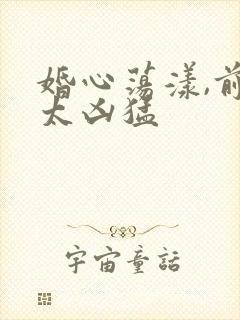 婚心荡漾,前
太凶猛
宇宙童話